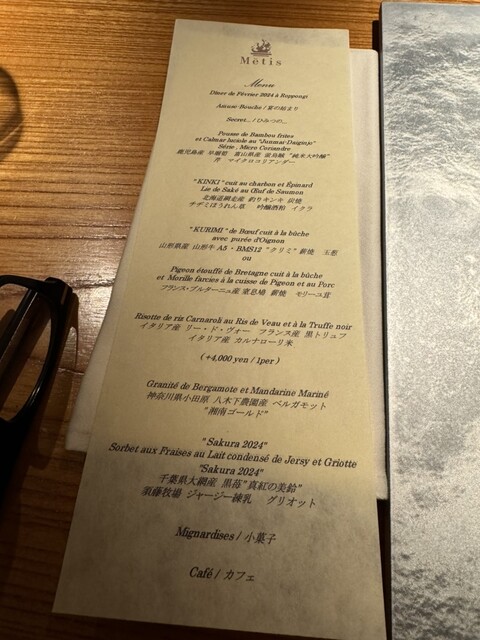 Mētis
Menu
Dîner de Février 2024 à Roppongi
Amuse-Bouche / 宴の始まり
Secret... / ひみつの...
Pousse de Bambou frites
et Calmar luciole au "Junmai-Daiginjo"
Séri, Micro Coriandre
鹿児島産 早堀筍 富山県産 蛍烏賊 "純米大吟醸"
芹 マイクロコリアンダー
"KINKI" cuit au charbon et Épinard
Lie de Saké au Œuf de Saumon
北海道網走産 釣りキンキ 炭焼
チヂミほうれん草 吟醸酒粕 イクラ
"KURIMI" de Bœuf cuit à la bûche
avec purée d'Oignon
山形県産 山形牛 A5・BMS12 "クリミ" 薪焼 玉葱
ou
Pigeon étouffé de Bretagne cuit à la bûche
et Morille farcies à la cuisse de Pigeon et au Porc
フランス・ブルターニュ産 窒息鳩 薪焼 モリーユ茸
Risotte de riz Carnaroli au Ris de Veau et à la Truffe noir
イタリア産 リー・ド・ヴォー フランス産 黒トリュフ
イタリア産 カルナローリ米
(+4,000 yen / 1per )
Granité de Bergamote et Mandarine Mariné
神奈川県小田原 八木下農園産 ベルガモット
"湘南ゴールド"
"Sakura 2024"
Sorbet aux Fraises au Lait condensé de Jersy et Griotte
"Sakura 2024"
千葉県大網産 黒苺"真紅の美鈴"
須藤牧場 ジャージー練乳 グリオット
Mignardises / 小菓子
Café / カフェ